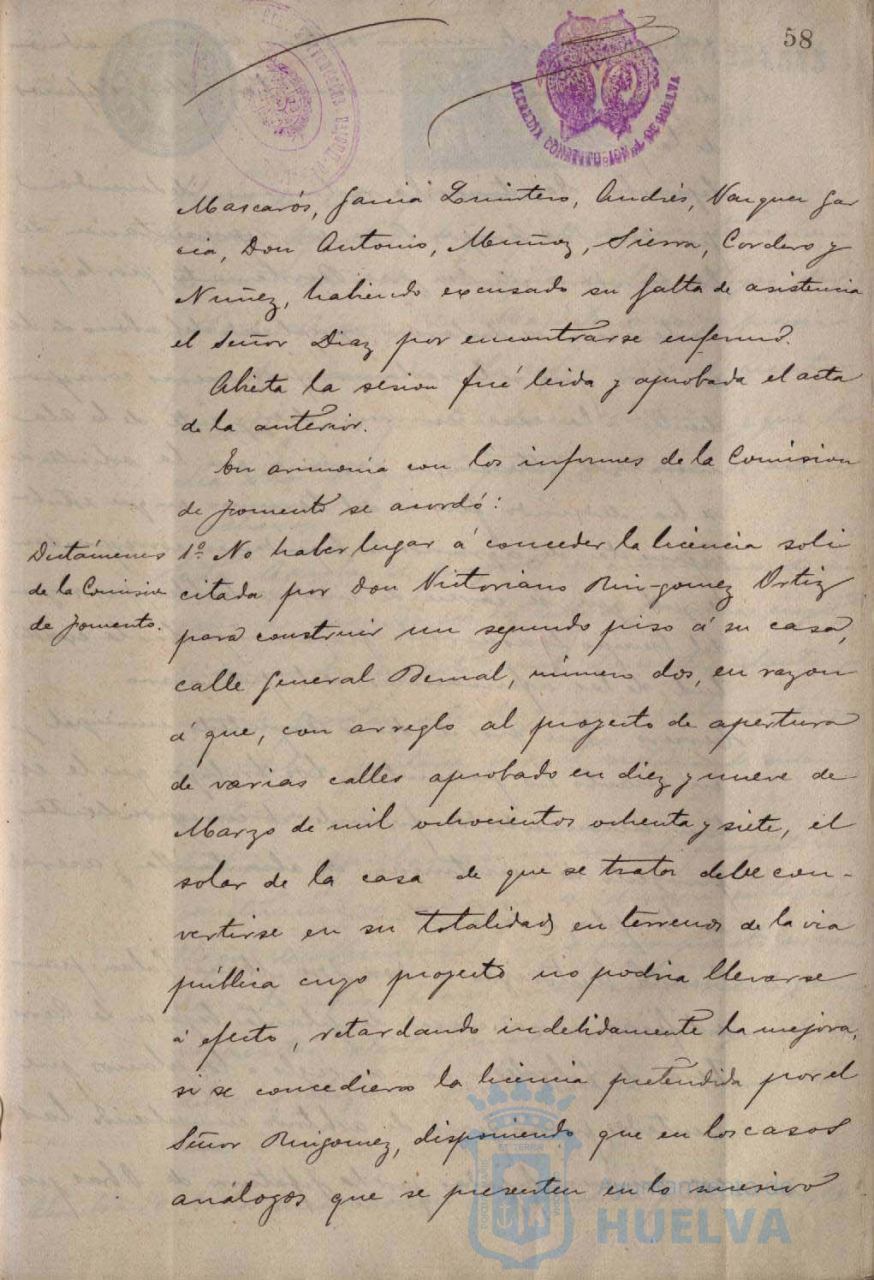 58
ALCALDIA CONSTITUCIONAL DE HUELVA
Mascarós, Garcia Quintero, Andrés, Vazquez Gar
cia, Don Antonio, Muñoz, Sierra, Cordero y
Nuñez, habiendo excusado su falta de asistencia
el Señor Diaz por encontrarse enfermo.
Abierta la sesion fué leida y aprobada el acta
de la anterior.
En armonia con los informes de la Comision
de Fomento se acordó:
Dictámenes
de la Comision
de Fomento.
1º No haber lugar á conceder la licencia soli
citada por Don Victoriano Ruigomez Ortiz
para construir un segundo piso á su casa,
calle General Bernal, número dos, en razon
á que, con arreglo al proyecto de apertura
de varias calles aprobado en diez y nueve de
Marzo de mil ochocientos ochenta y siete, el
solar de la casa de que se trata debe con-
vertirse en su totalidad en terrenos de la via
pública cuyo proyecto no podria llevarse
á efecto, retardando indebidamente la mejora,
si se concediera la licencia pretendida por el
Señor Ruigomez, disponiendo que en los casos
análogos que se presenten en lo sucesivo
Ayuntamiento de
HUELVA